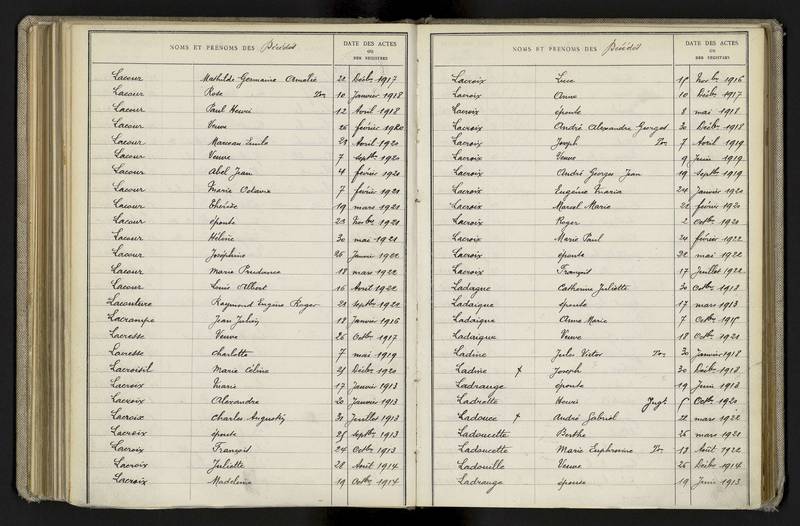 NOMS ET PRÉNOMS DES Décédés
DATE DES ACTES
OU
DES REGISTRES
Lacour Mathilde Germaine Amélie 22 Décbre 1917
Lacour Rose 10 Janvier 1918
Lacour Paul Henri 12 Avril 1918
Lacour Veuve 26 février 1920
Lacour Marceau Emile 29 Avril 1920
Lacour Veuve 7 Septbre 1920
Lacour Abel Jean 4 février 1920
Lacour Marie Octavie 7 février 1921
Lacour Thérèse 19 mars 1921
Lacour épouse 23 Novbre 1921
Lacour Hélène 30 mai 1921
Lacour Joséphine 26 Janvier 1922
Lacour Marie Prudence 18 mars 1922
Lacour Louis Albert 16 Avril 1922
Lacouture Raymond Eugène Roger 21 Septbre 1922
Lacrampe Jean Julien 18 Janvier 1916
Lacresse Veuve 26 Octbre 1917
Lacresse Charlotte 7 mai 1919
Lacroisil Marie Céline 21 Décbre 1920
Lacroix Marie 17 Janvier 1913
Lacroix Alexandre 20 Janvier 1913
Lacroix Charles Augustin 31 Juillet 1913
Lacroix épouse 25 Septbre 1913
Lacroix François 24 Octbre 1913
Lacroix Juliette 28 Août 1914
Lacroix Madeleine 19 Octbre 1914
NOMS ET PRÉNOMS DES Décédés
DATE DES ACTES
OU
DES REGISTRES
Lacroix Luce 15 Novbre 1916
Lacroix Anne 10 Décbre 1917
Lacroix épouse 8 mai 1918
Lacroix André Alexandre Georges 30 Décbre 1918
Lacroix Joseph 7 Avril 1919
Lacroix Veuve 9 Juin 1919
Lacroix André Georges Jean 19 Septbre 1919
Lacroix Eugénie Maria 24 Janvier 1920
Lacroix Marcel Marie 22 février 1920
Lacroix Roger 2 Octbre 1920
Lacroix Marie Paul 24 février 1922
Lacroix épouse 22 mai 1922
Lacroix François 17 Juillet 1922
Ladague Catherine Juliette 30 Octbre 1913
Ladaigue épouse 17 mars 1913
Ladaigue Anne Marie 7 Octbre 1915
Ladaigue Veuve 18 Octbre 1921
Ladine Jules Victor 30 Janvier 1918
Ladine + Joseph 30 Décbre 1913
Ladrange épouse 19 Juin 1913
Ladrette Henri Jugt 5 Octbre 1920
Ladouce + André Gabriel 22 mars 1922
Ladoucette Berthe 26 mars 1921
Ladoucette Marie Euphrosine 13 Août 1922
Ladouille Veuve 26 Décbre 1914
Ladrange épouse 19 Juin 1913